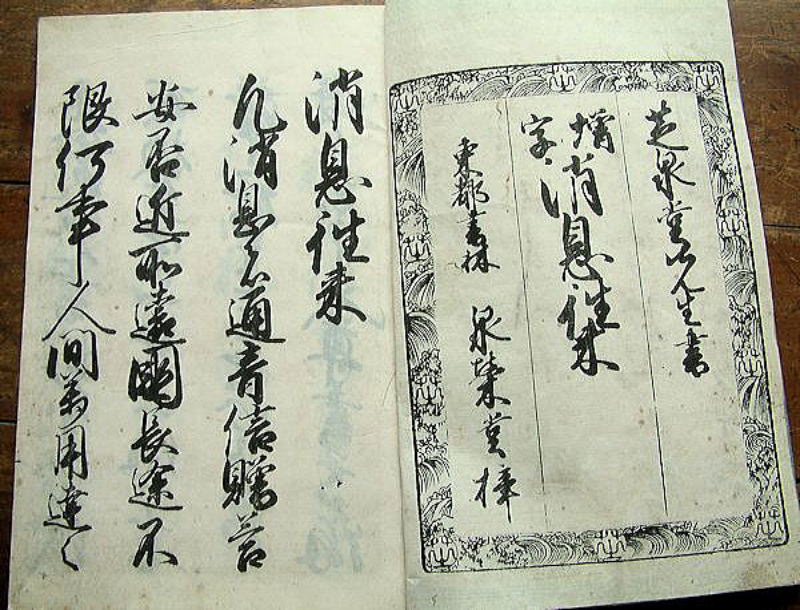 芝泉堂先生書
増字
消息往来
東都書林 泉榮堂梓
消息往来
凡消息者通音信贈答
安否近所遠國長途不
限何事人間萬用達之